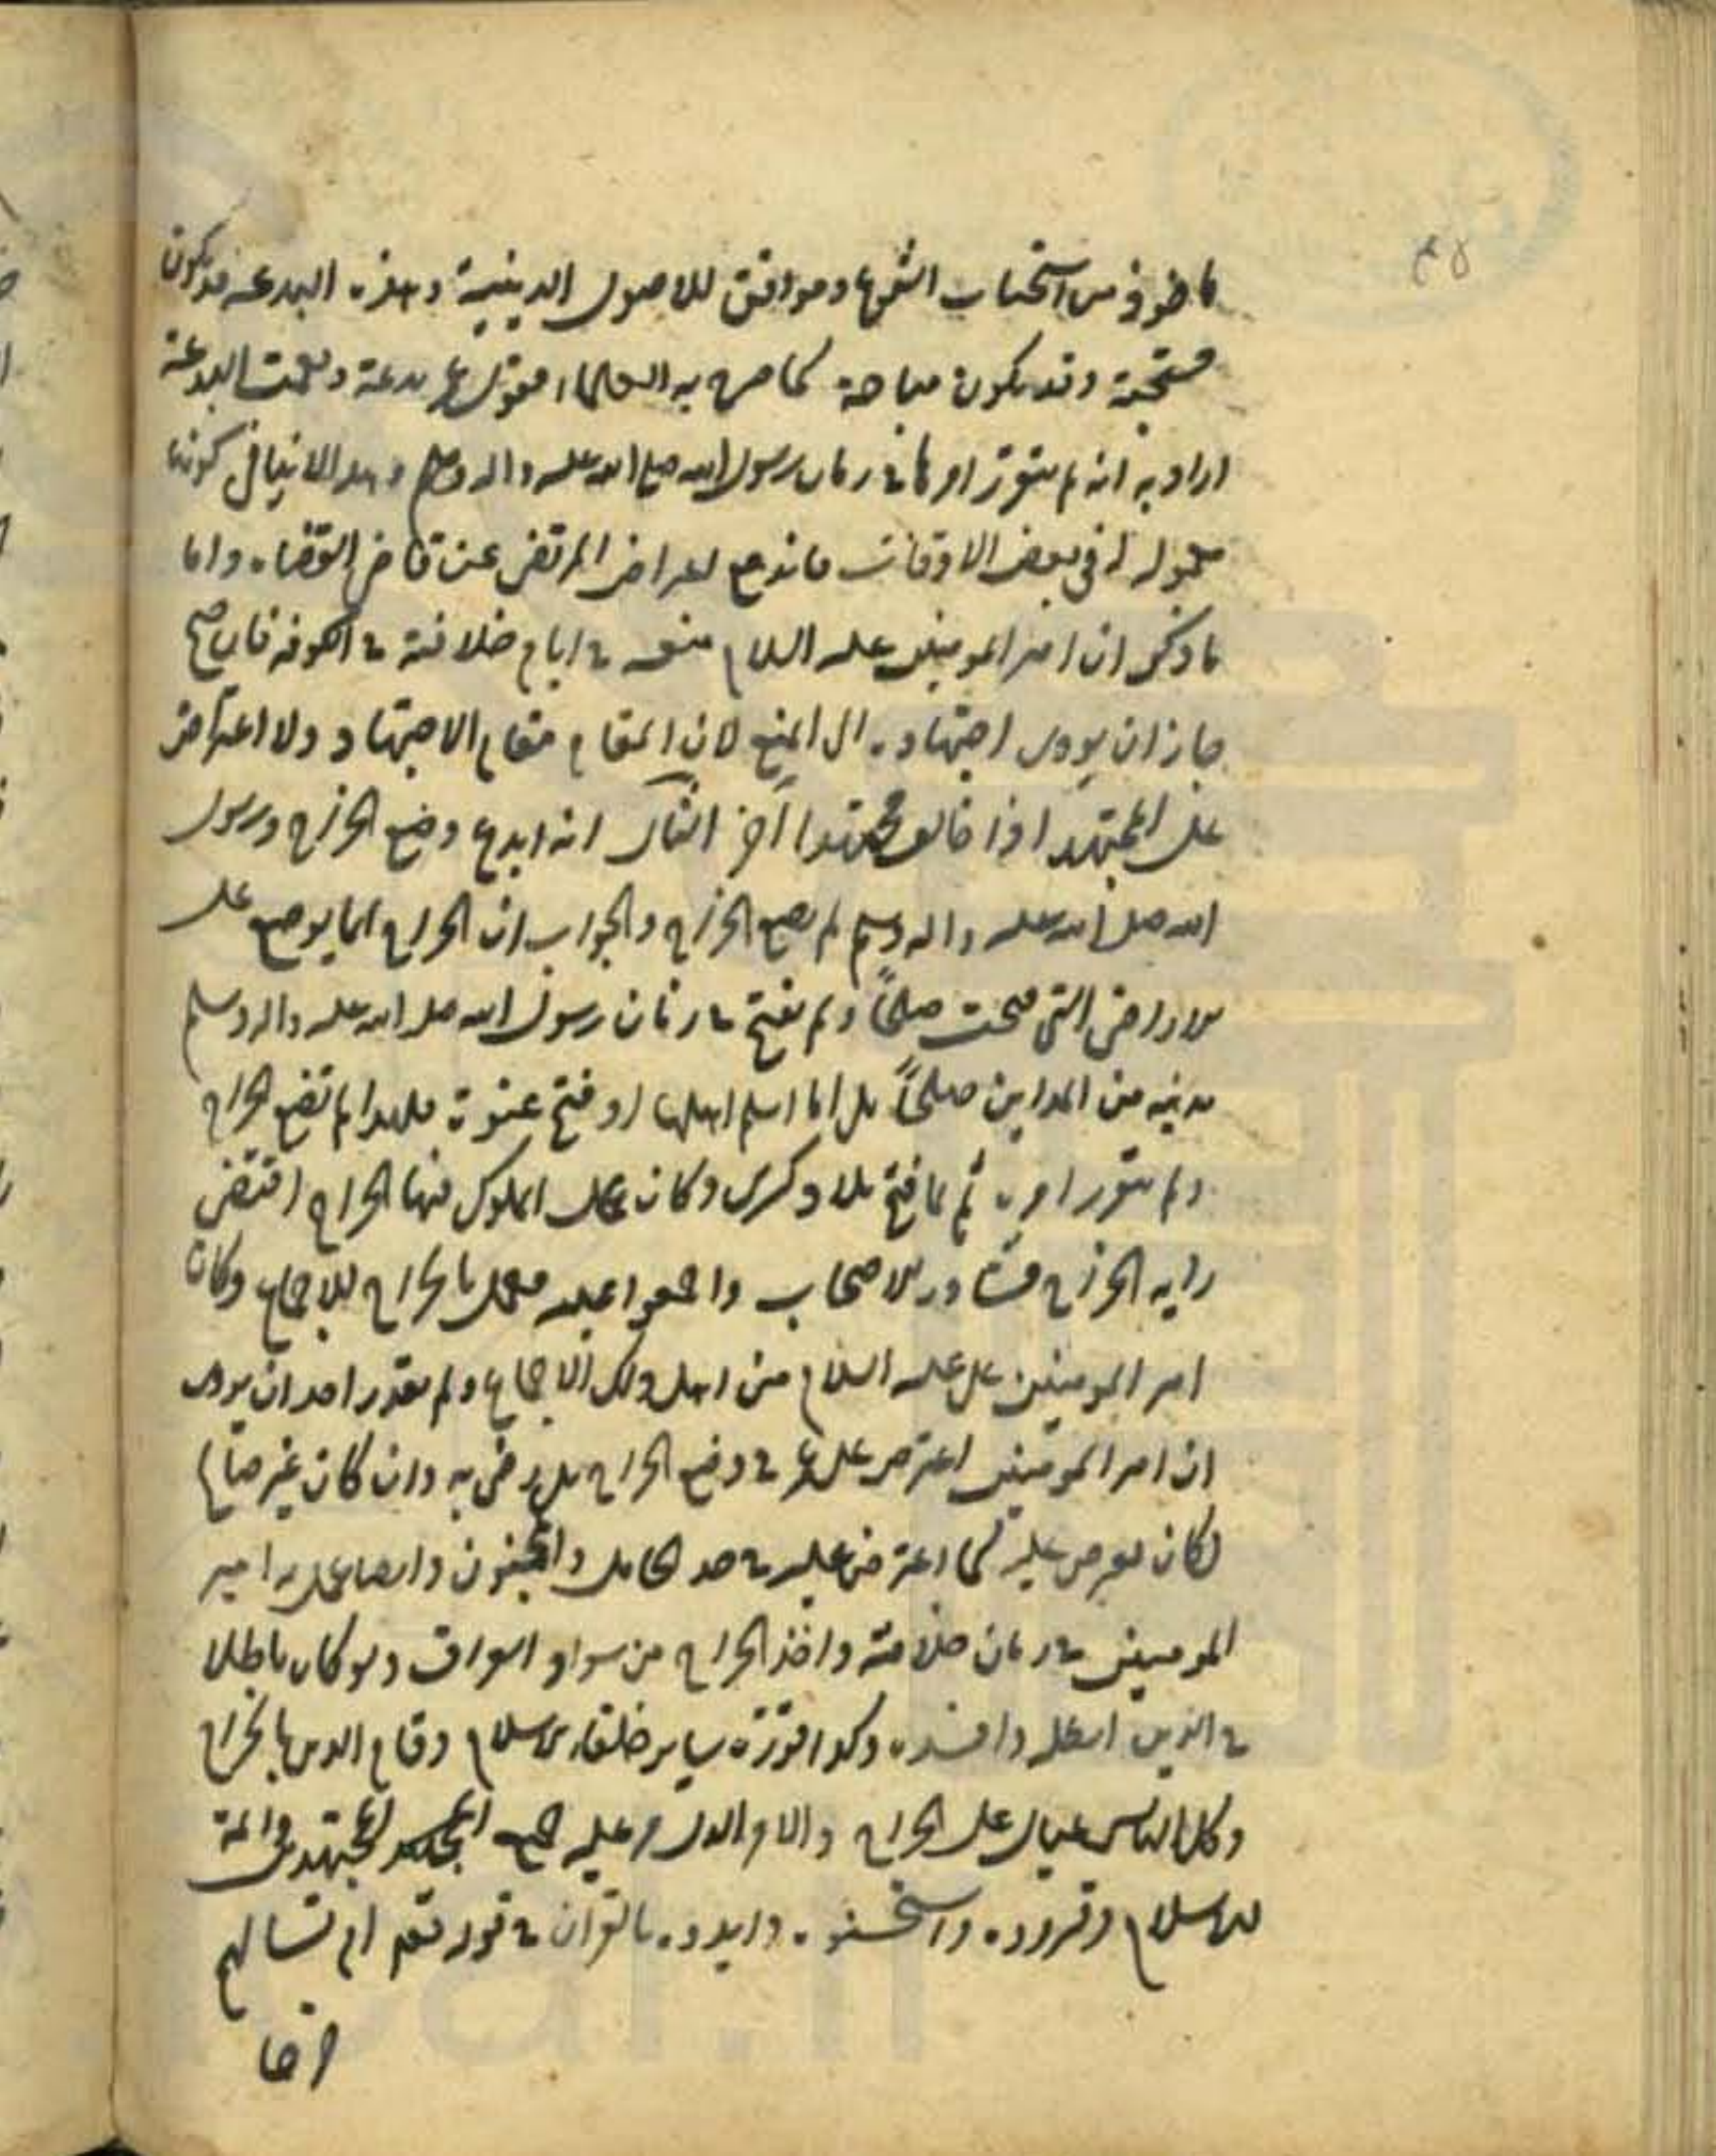 ماخوذ من استحباب الشرع وموافق للاصول الدينية وهذه البدعة قد يكون
مستحبة وقد يكون مباحة كما صرح به العلماء فقول عمر بدعة ونعمت البدعة
اراد به انه لم يتقرر امرها في زمان رسول الله صلى الله عليه واله وسلم وهذا لا ينافي كونها
معمولة في بعض الاوقات فاندفع اعتراض المرتضى عن قاضي القضاة واما
ما ذكر ان امير المومنين عليه السلام منعه في ايام خلافته في الكوفة فان صح
جاز ان يودى اجتهاده الى المنع لان المقام مقام الاجتهاد ولا اعتراض
على المجتهد اذا خالف مجتهدا آخر الثاني انه ابدع وضع الخراج ورسول
الله صلى الله عليه واله وسلم لم يضع الخراج والجواب ان الخراج انما يوضع على
الاراضي التي فتحت صلحاً ولم يفتح في زمان رسول الله صلى الله عليه واله وسلم
مدينة من المداين صلحاً بل اما اسلم اهلها او فتح عنوة فلهذا لم تضع الخراج
ولم يتقرر امره ثم لما فتح بلاد كسرى وكان عمل الملوك فيها الخراج اقتضى
رايه الخراج فشاور الاصحاب واجمعوا عليه فعمل بالخراج للاجماع وكان
امير المومنين علي عليه السلام من اهل ذلك الاجماع ولم يقدر احد ان يروى
ان امير المومنين اعترض على عمر في وضع الخراج بل رضي به وان كان غير صالح
لكان يعترض عليه كما اعترض عليه في حد الحامل والمجنون وايضا عمل به امير
المومنين في زمان خلافته واخذ الخراج من سواد العراق ولو كان باطلا
في الدين ابطله وافسده وكذا قرره ساير خلفاء الاسلام وقام الدين بالخراج
وكل الناس عيال على الخراج والامر الذي عليه جميع المجتهدين وائمة
الاسلام وقرروه واستحسنوه وايدوه بالقران في قوله تعالى ام تسالهم
خرجا